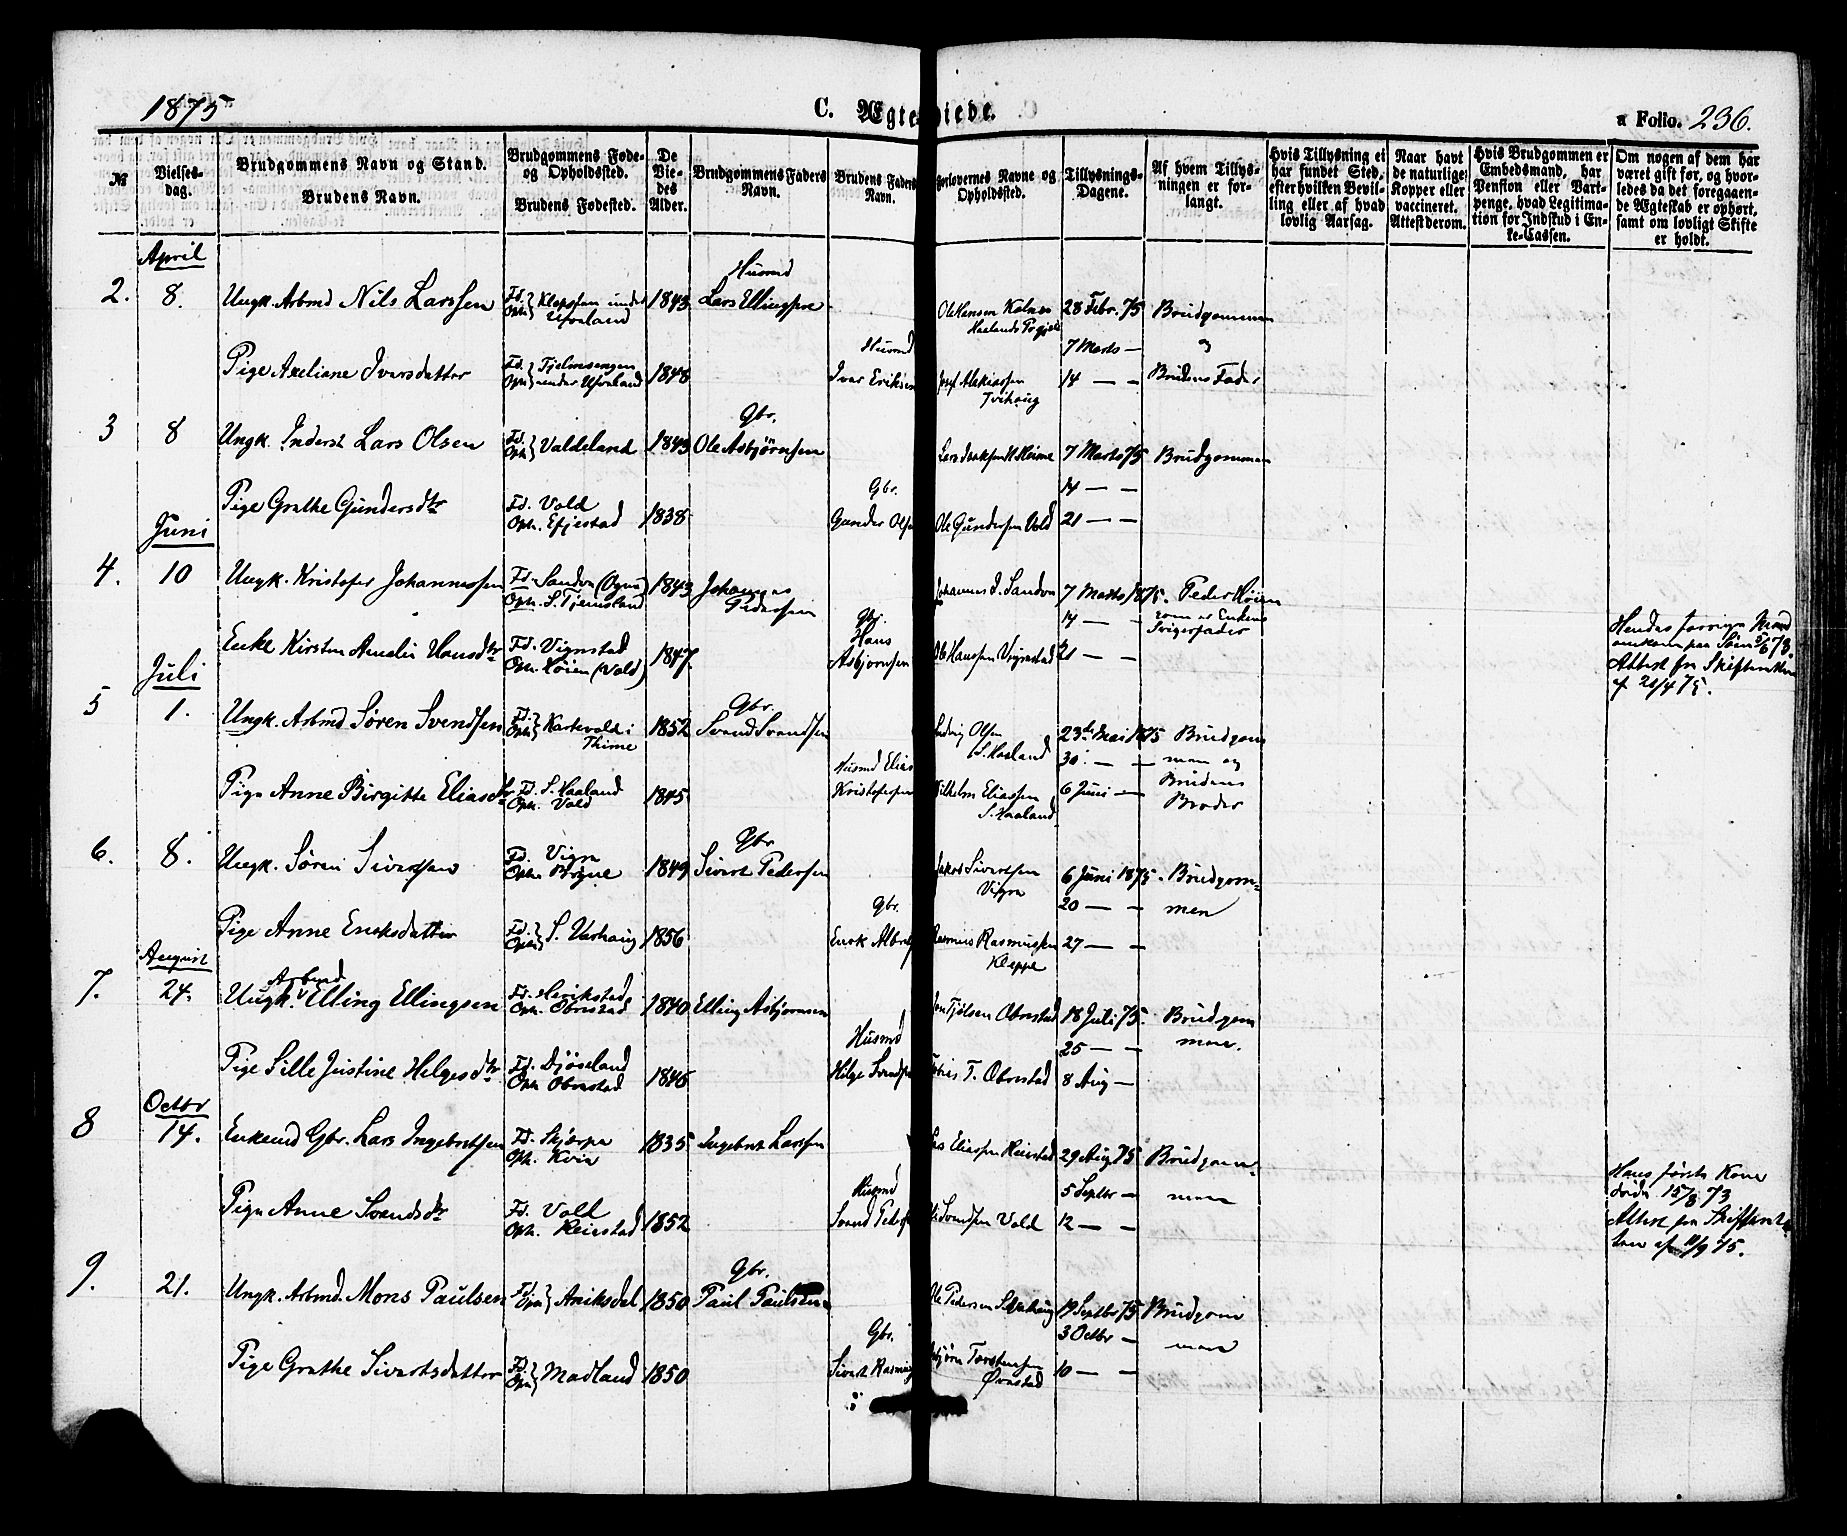 1875
C. Ægteviede.
a Folio. 236.
№
Vielses-
dag.
Brudgommens Navn og Stand.
Brudens Navn.
Brudgommens Føde-
og Opholdssted.
Brudens Fødested.
De
Vie-
des
Alder.
Brudgommens Faders
Navn.
Brudens Faders
Navn.
Forlovernes Navne og
Opholdssted.
Tillysnings-
Dagene.
Af hvem Tillys-
ningen er for-
langt.
Hvis Tillysning ei
har fundet Sted,
efter hvilken Bevil-
ling eller af hvad
lovlig Aarsag.
Naar havt
de naturlige
Kopper eller
vaccineret.
Attesterom.
Hvis Brudgommen er
Embedsmand, har
Pension eller Vart-
penge, hvad Legitima-
tion for Indskud i En-
ke-Cassen.
Om nogen af dem har
været gift før, og hvor-
ledes da det foregaaen-
de Ægteskab er ophørt,
samt om lovligt Skifte
er holdt.
April
2. 8. Ungk. Arbmd Nils Larssen
Fd. Oph. Kleppen under
1843
Husmd
Lars Ellingsen
Ole Hansen
28 Febr. 75
7 Marts —
Brudgommen
og
Pige Axeliane Iversdatter
Fd. Oph. under
1848
Husmd
Iver Eriksen
Tvihaug
14 — —
Brudens Fader
3 8 Ungk. Inderst Lars Olsen
Fd. Oph. Valdeland
1843
Gbr.
Ole Asbjørnsen
7 Marts 75
14 — —
Brudgommen
Pige Grethe Gundersdtr
Fd. Vold
Oph. Efjestad
1838
Gbr.
Gunder Olsen
Ole Gundersen Vold
21 — —
Juni
4. 10 Ungk. Kristofer Johannessen
Fd. Sandve (Ogna)
Oph. S. Tjemsland
1843
Johannes
Pedersen
Johannes J. Sandve
7 Marts 1875.
14 — —
Peder Høien
som er Enkens
Svigerfader
Enke Kirsten Amalie Hansdtr
Fd. Vignestad
Oph. Høien (Vold)
1847.
Gbr.
Hans
Asbjørnsen
Ole Hanssen Vignestad
21 — —
Hendes forrige Mand
omkom paa Søen
Attest fra Skifteretten
af 21/4 75.
Juli
5 1. Ungk. Arbmd Søren Svendsen
Fd. Oph. Kartevold i
Thime
1852
Gbr.
Svend Svendsen
Olsen
S. Haaland
23de Mai 1875
30. — —
Brudgom-
men og
Pige Anne Birgitte Eliasdtr
Fd. S. Haaland
Oph. Vold
1845
Husmd Elias
Kristofersen
Vilhelm Eliassen
S. Haaland
6 Juni —
Brudens
Broder
6. 8. Ungk. Søren Sivertsen
Fd. Vigre
Oph. Bryne
1849
Gbr
Sivert Pedersen
Jakob Sivertsen
Vigre
6 Juni 1875.
20 — —
Brudgom-
men
Pige Anne Enoksdatter
Fd. Oph. S. Varhaug
1856
Gbr.
Enok
Rasmus Rasmussen
Kleppe
27 — —
August
7. 24. Ungk. Arbmd Elling Ellingsen
Fd. Henrikstad
Oph. Obrestad
1840
Elling Asbjørnsen
Obrestad
18 Juli 75.
25 — —
Brudgom
men.
Pige Sille Justine Helgesdtr
Fd. Djøseland
Oph. Obrestad
1846
Husmd
Helge Svendsen
T. Obrestad
8 Aug —
Octbr
8 14. Enkemd Gbr. Lars Ingebretsen
Fd. Skjærpe
Oph. Kvia
1835
Ingebret Larssen
Eliassen Reiestad
29 Aug. 75
5 Septbr —
Brudgom-
men
Pige Anne Svendsdtr
Fd. Vold
Oph. Reiestad
1852
Husmd
Svend
Svendsen Vold
12 — —
Hans første Kone
døde 15/8 73
Attest fra Skifteret-
ten af 11/9 75.
9. 21. Ungk. Arbmd. Mons Paulsen
Fd. Oph. Aniksdal
1850
Gbr.
Paul Paulsen
Ole Pedersen
19 Septbr 75
3 Octbr —
Brudgom
men
Pige Grethe Sivertsdatter
Fd. Oph. Madland
1850
Gbr.
Sivert
Torstensen
Ørestad
10 — —